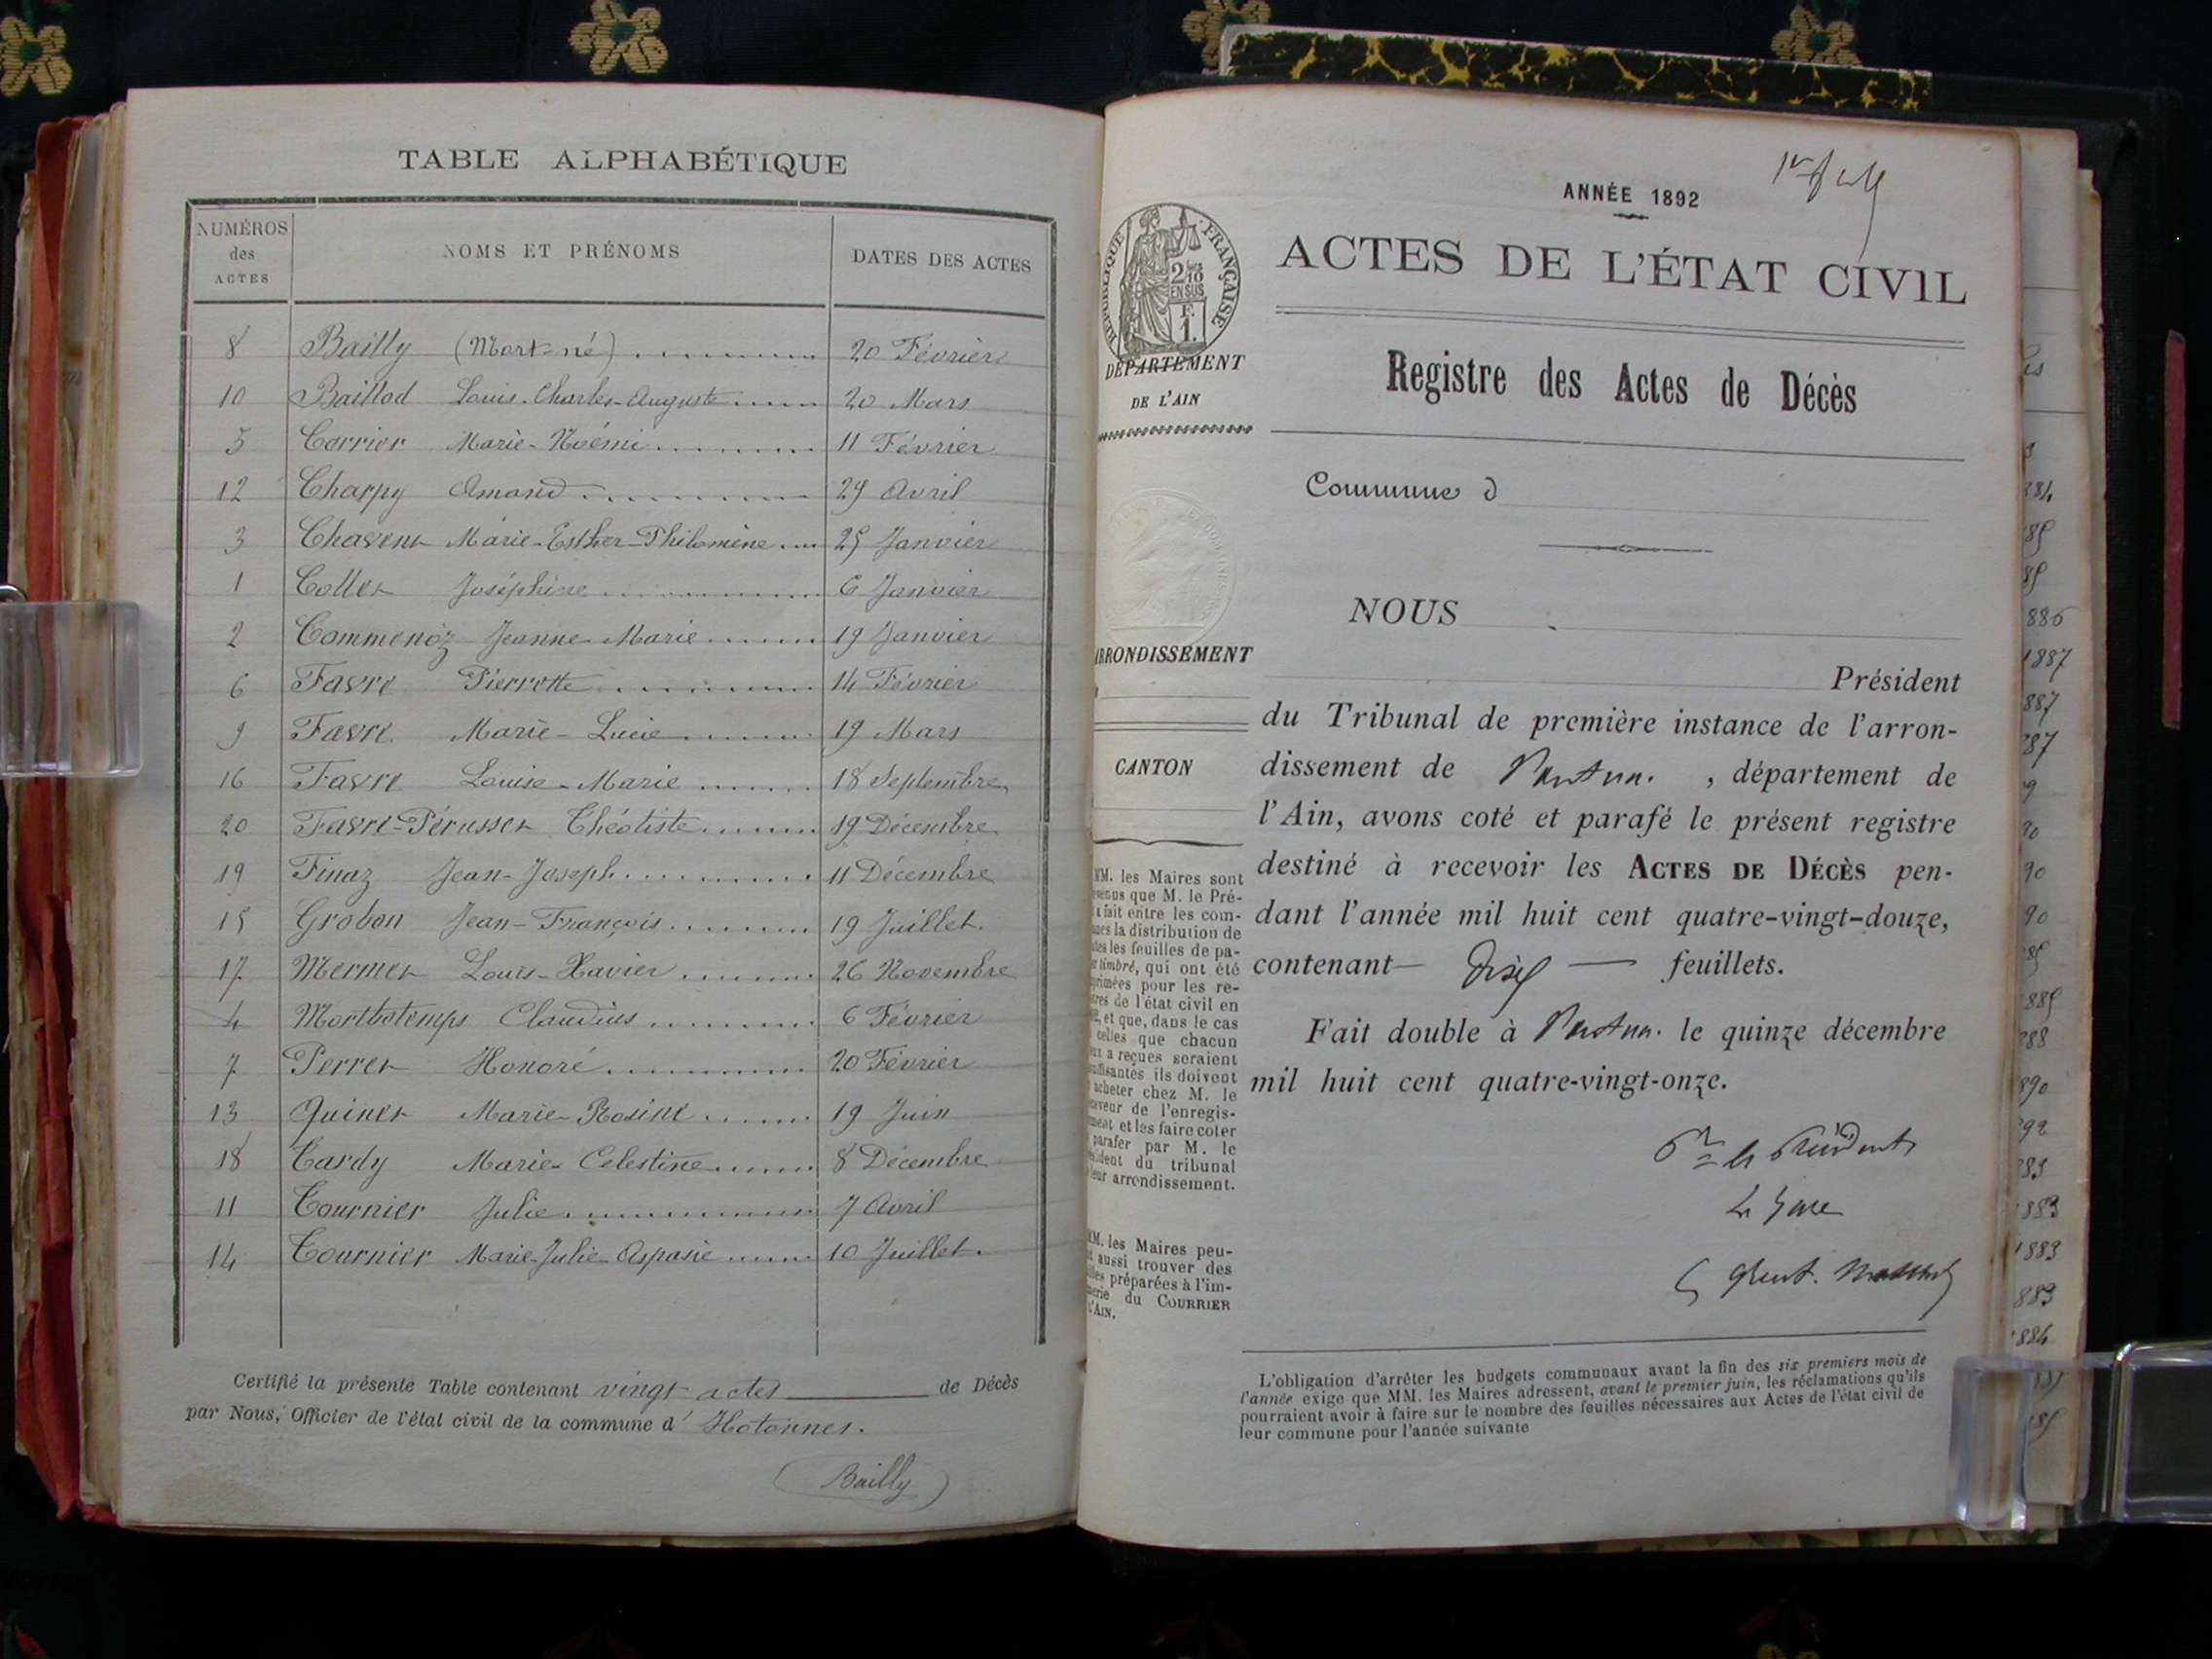 TABLE ALPHABÉTIQUE
NUMÉROS des ACTES NOMS ET PRÉNOMS DATES DES ACTES
8 Bailly (Mort-né) 20 Février
10 Baillod Louis-Charles-Auguste 20 Mars
5 Carrier Marie-Noémi 11 Février
12 Charpy Amand 29 Avril
3 Chavent Marie-Esther-Philomène 25 Janvier
1 Collet Joséphine 6 Janvier
2 Commenoz Jeanne-Marie 19 Janvier
6 Favre Pierrette 14 Février
9 Favre Marie-Lucie 19 Mars
16 Favre Louise-Marie 18 Septembre
20 Favre-Pérusset Théotiste 19 Décembre
19 Finaz Jean-Joseph 11 Décembre
15 Grobon Jean-François 19 Juillet.
17 Mermet Louis-Xavier 26 Novembre
4 Mortbotemps Claudius 6 Février
7 Perret Honoré 20 Février
13 Quinet Marie-Rosine 19 Juin
18 Tardy Marie-Celestine 8 Décembre
11 Tournier Julie 7 Avril
14 Tournier Marie-Julie-Aspasie 10 Juillet.
Certifié la présente Table contenant vingt actes de Décès
par Nous, Officier de l'état civil de la commune d' Hotonnes.
Bailly
ANNÉE 1892
ACTES DE L'ÉTAT CIVIL
RÉPUBLIQUE FRANÇAISE
2/10
EN SUS
F.
1.
DÉPARTEMENT
DE L'AIN
Registre des Actes de Décès
Commune d
NOUS
ARRONDISSEMENT
Président
du Tribunal de première instance de l'arron-
dissement de , département de
CANTON
l'Ain, avons coté et parafé le présent registre
destiné à recevoir les ACTES DE DÉCÈS pen-
dant l'année mil huit cent quatre-vingt-douze,
contenant feuillets.
Fait double à le quinze décembre
mil huit cent quatre-vingt-onze.
Pr le Président
Le Juge
MM. les Maires sont
que M. le Pré-
fait entre les com-
la distribution de
les feuilles de pa-
timbré, qui ont été
pour les re-
de l'état civil en
et que, dans le cas
celles que chacun
a reçues seraient
ils doivent
acheter chez M. le
de l'enregis-
et les faire coter
parafer par M. le
du tribunal
leur arrondissement.
MM. les Maires peu-
aussi trouver des
préparées à l'im-
du COURRIER
L'AIN.
L'obligation d'arrêter les budgets communaux avant la fin des six premiers mois de
l'année exige que MM. les Maires adressent, avant le premier juin, les réclamations qu'ils
pourraient avoir à faire sur le nombre des feuilles nécessaires aux Actes de l'état civil de
leur commune pour l'année suivante